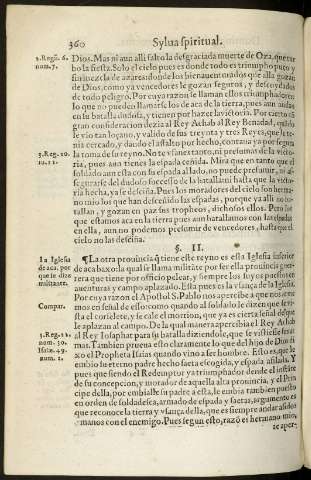 360 Sylua spiritual.
2.Regū. 6. num.7.
Dios. Mas ni aun alli falto la desgraciada muerte de Oza, que turbo la fiesta. Solo el cielo pues es donde todo es triumpho puro y
sin mezcla de azares: donde los bienauenturados que alla gozan
de Dios, como ya vencedores le gozan seguros, y descuydados
de todo peligro. Por cuya razon se llaman ellos triumphadores
lo que no pueden llamarse los de aca de la tierra, pues aun andas
en su batalla dudosa, y tienen por hazer la victoria. Por cierto cō
gran consideracion dezia al Rey Achab al Rey Benadad, quādo
le vio tan loçano, y valido de sus treynta y tres Reyes, que le tenia cercado, y dando el assalto por hecho, contaua ya por segura
3.Reg. 20. nu. 11.
la toma de su reyno. No te vfanes tanto, ni presumas de la victoria, pues aun tienes la espada ceñida. Mira que en tanto que el
soldado aun esta con su espada al lado, no puede presumir, ni assegurarse del dudoso successo de la batalla: ni hasta que la victoria
hecha, ya se desciña. Pues los moradores del cielo son hermano mio los que han desceñido las espadas, porque ya alli no batallan, y gozan en paz sus tropheos, dichosos ellos. Pero los
que estamos aca en la tierra pues aun batallamos con la espada
en ella, aun no podemos presumir de vencedores, hasta que el
cielo no las desciña.
§. II.
La Iglesia de aca, por que se dize militante.
¶La otra prouincia q̄ tiene este reyno es esta Iglesia inferior
de aca baxo: la qual se llama militante por ser ella prouincia guerrera que tiene por officio pelear, y siempre los suyos puestos en
auenturas y campo aplazado. Esta pues es la vsança de la Iglesia.
Compar.
Por cuya razon el Apostol S. Pablo nos apercibe a que nos armemos en señal de esso: como quando al soldado le dizen que se vista el coselete, y se cale el morrion, que ya es cierta señal de que
le aplazan al campo. De la qual manera apercibia el Rey Achab
3.Reg. 22. num. 30. Isaiæ. 49. num. 2.
al Rey Iosaphat para su batalla diziendole, que se vistiesse sus armas. Tambien prueua esto claramente lo que del hijo de Dios dixo el Propheta Isaias quando vino a ser hombre. Esto es, que le
embio su eterno padre hecho saeta escogida, y espada afilada. Y
pues que siendo el Redemptor ya triumphador dende el instante
de su concepcion, y morador de aquella alta prouincia, y el Principe della, por embialle su padre a esta, le embia tambien puesto
en orden de soldadesca, armado de espada y saetas, argumento es
que reconoce la tierra y vsança della, que es siempre andar assidos
a manos con el enemigo. Pues segun esto, razō es hermano mio,
te aper-